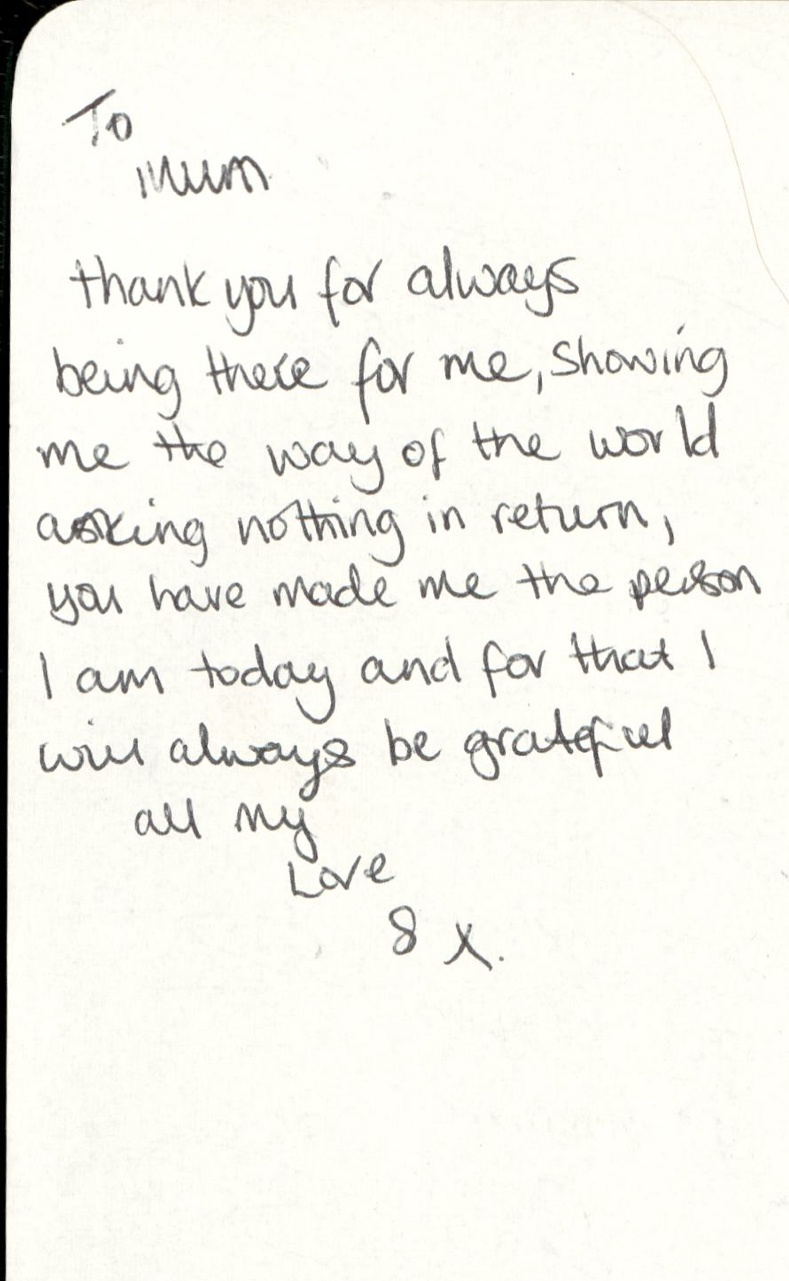 To
Mum
thank you for always
being there for me, showing
me the way of the world
asking nothing in return,
you have made me the person
I am today and for that I
will always be grateful
all my
Love
8 x.